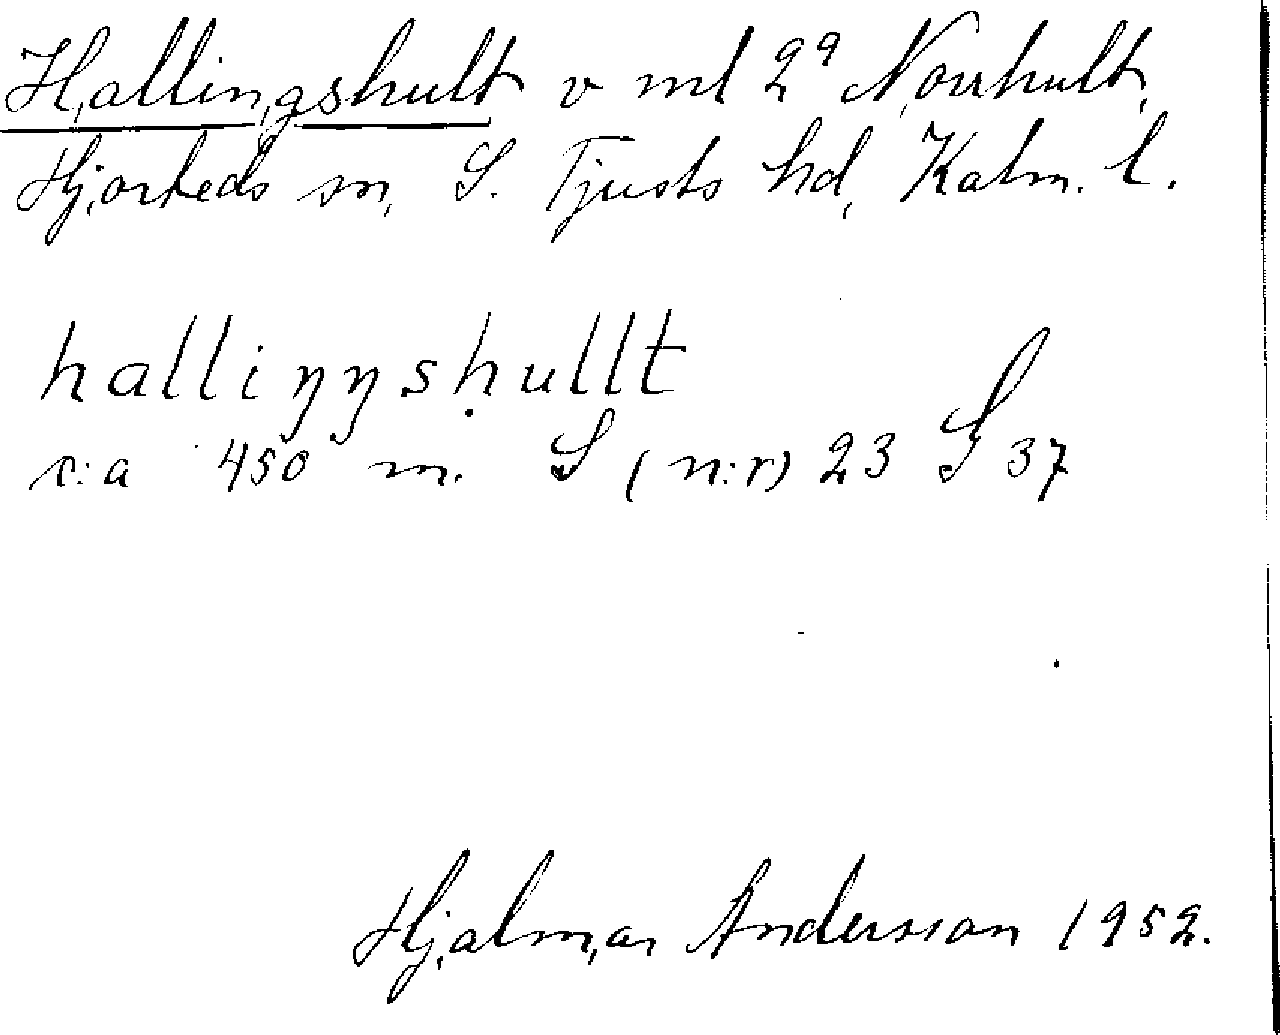 Hallingshult v ml 2ª Norrhult,
Hjorteds sn, S. Tjusts hd, Kalm. l.
halliŋŋshullt
c:a 450 m. S (n:r) 23 S 37
Hjalmar Andersson 1952.